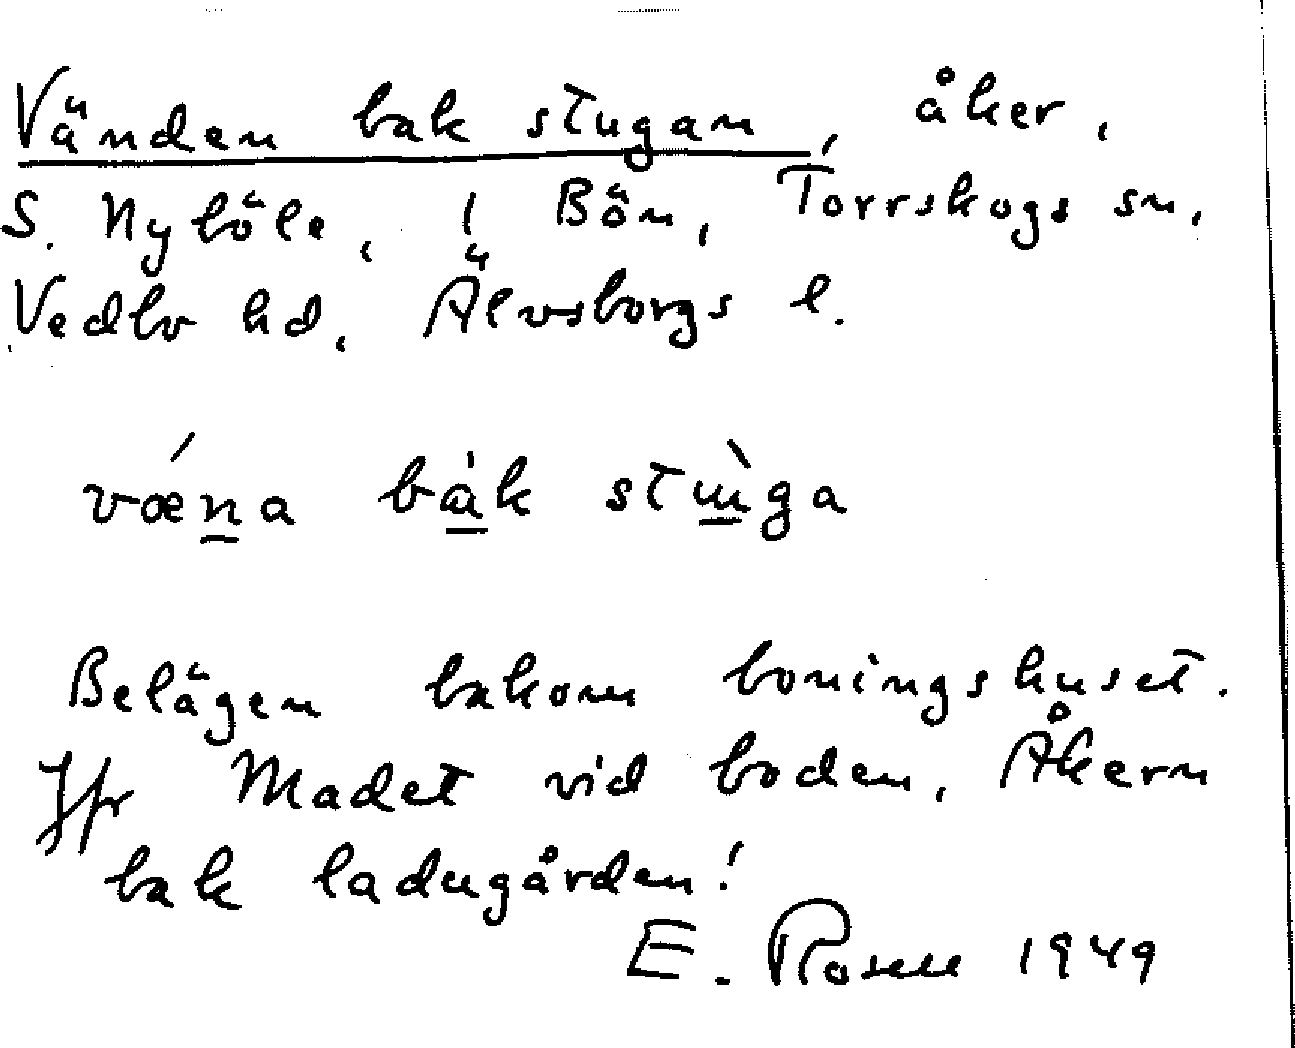 Vänden bak stugan, åker,
S. Nyböle, 1 Bön, Torrskogs sn,
Vedbo hd, Älvsborgs l.
væ´na bàk stɯ̀ga
Belägen bakom boningshuset.
Jfr Madet vid boden, Åkern
bak ladugården!
E. Rosell 1949